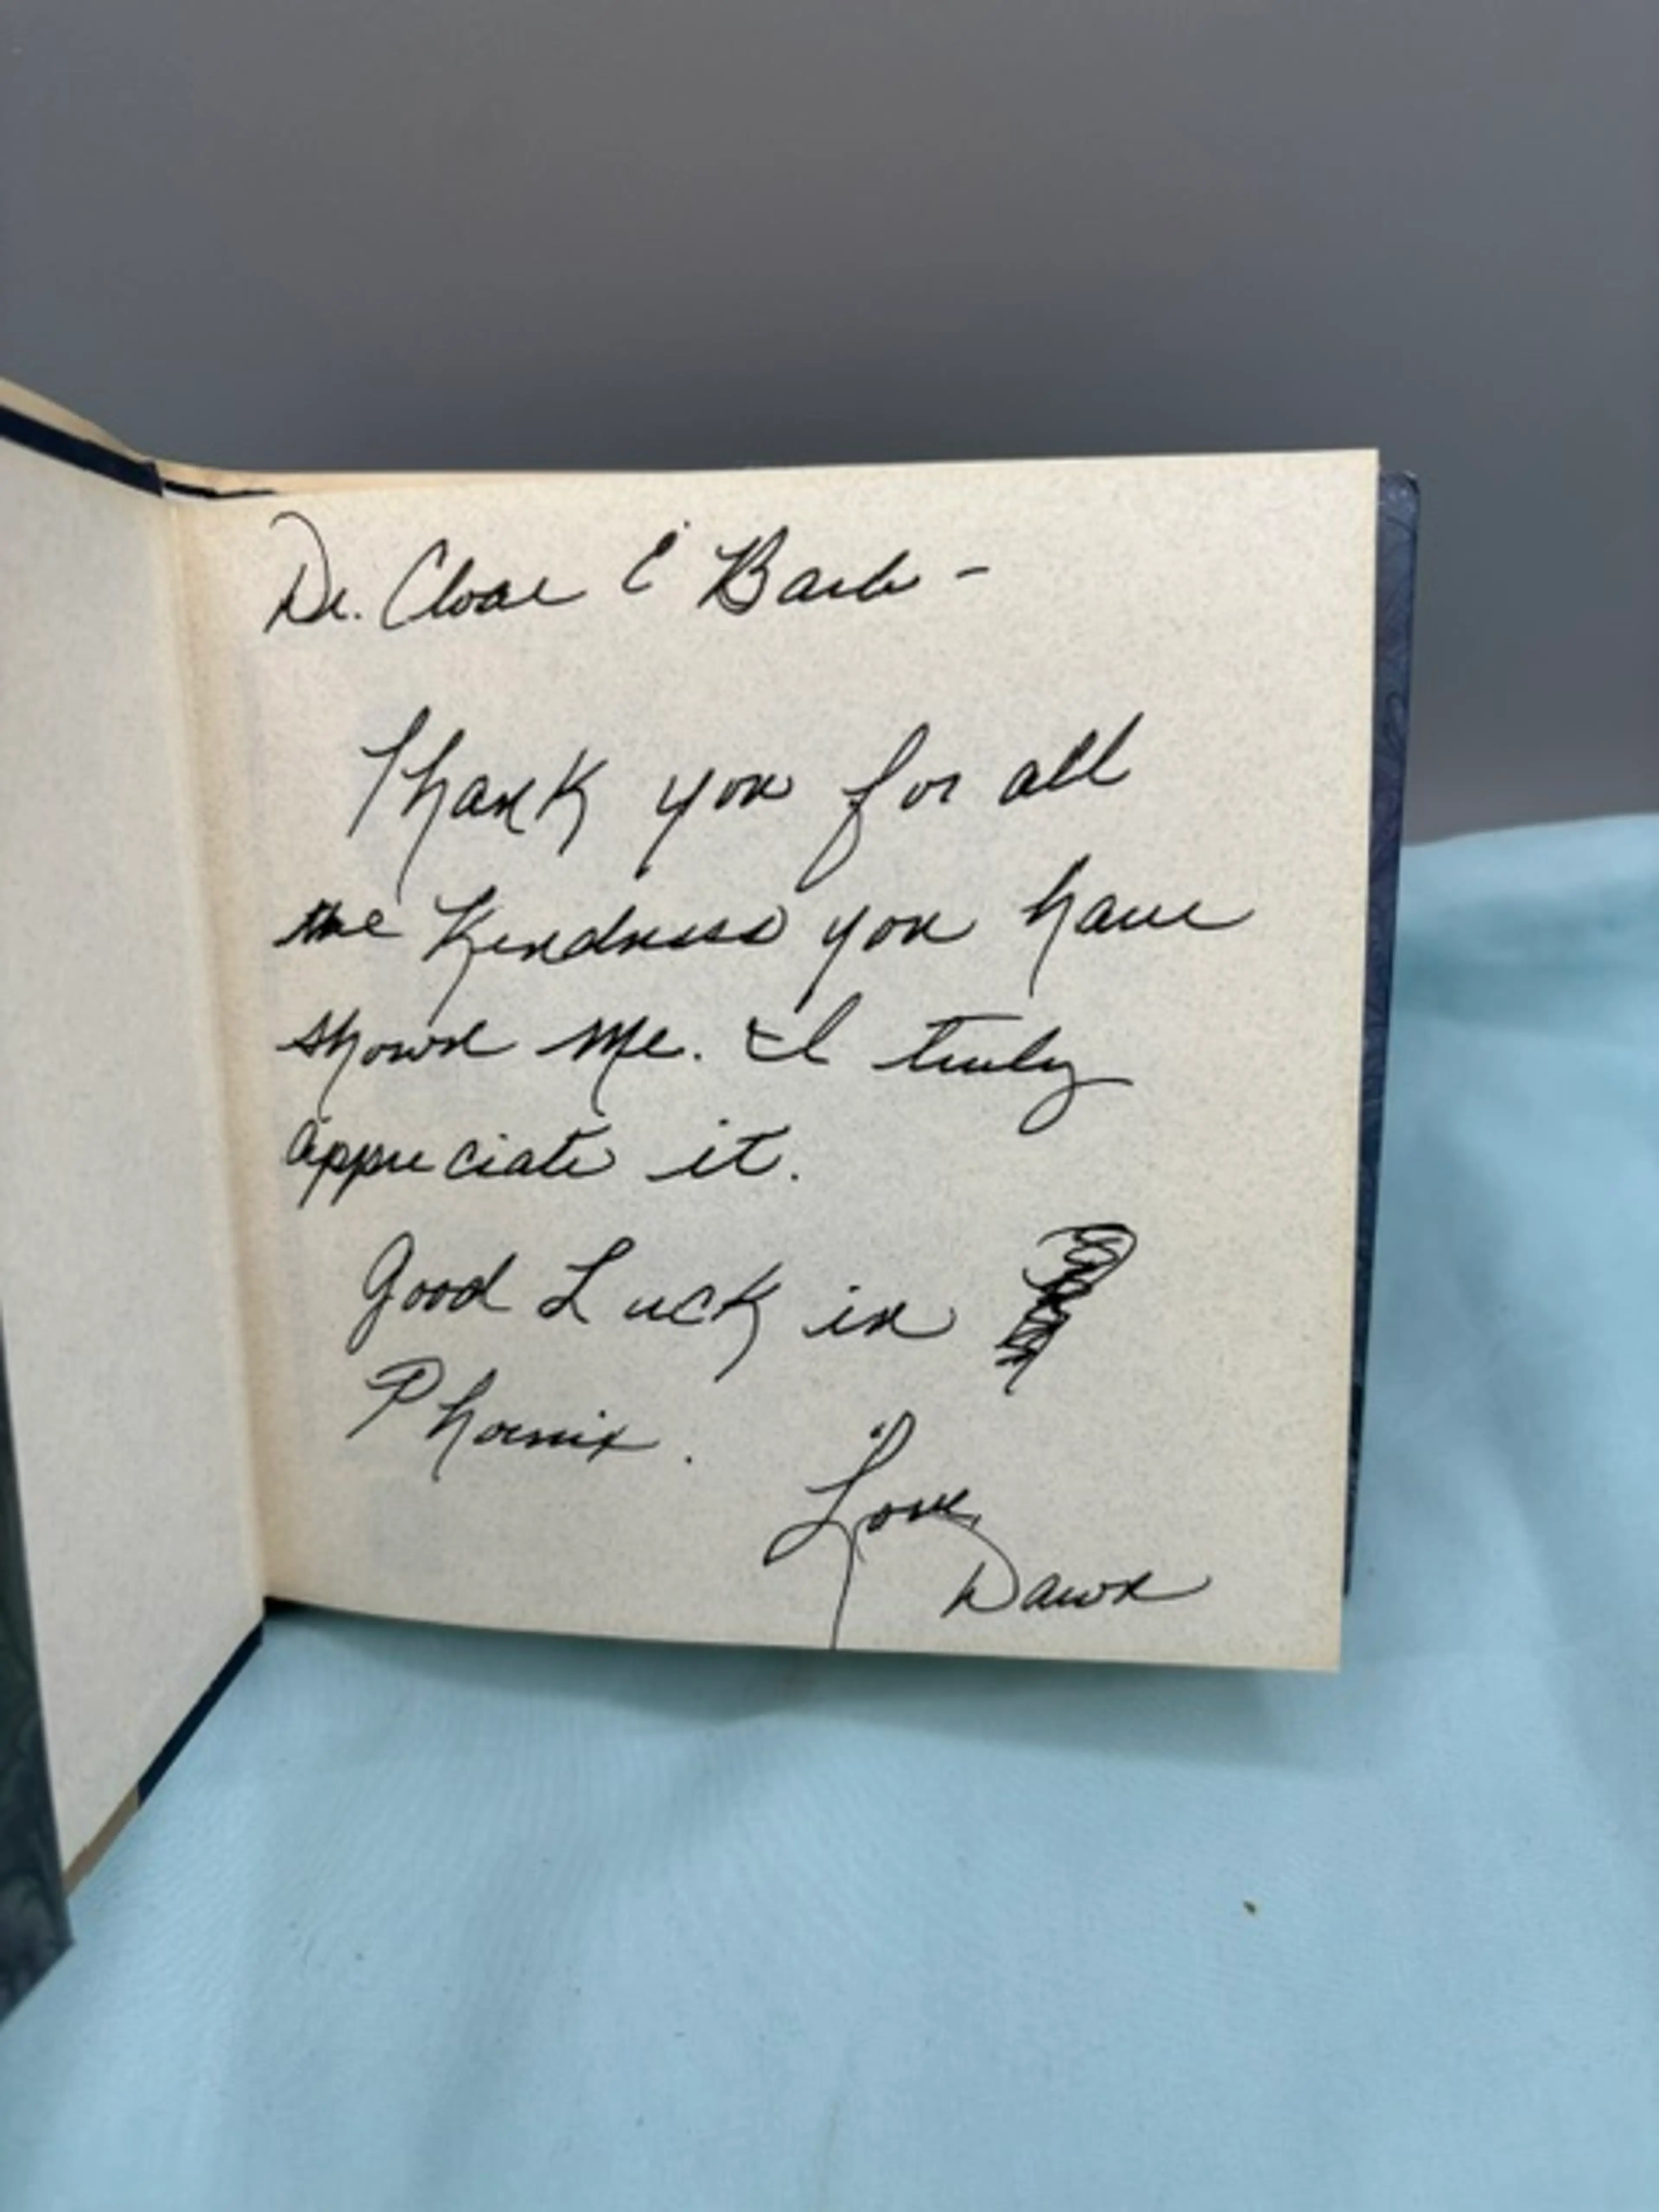 Dr. Cloar & Barb -
Thank you for all
the Kindness you have
shown me. I truly
appreciate it.
Good Luck in
Phoenix.
Love,
Dawn